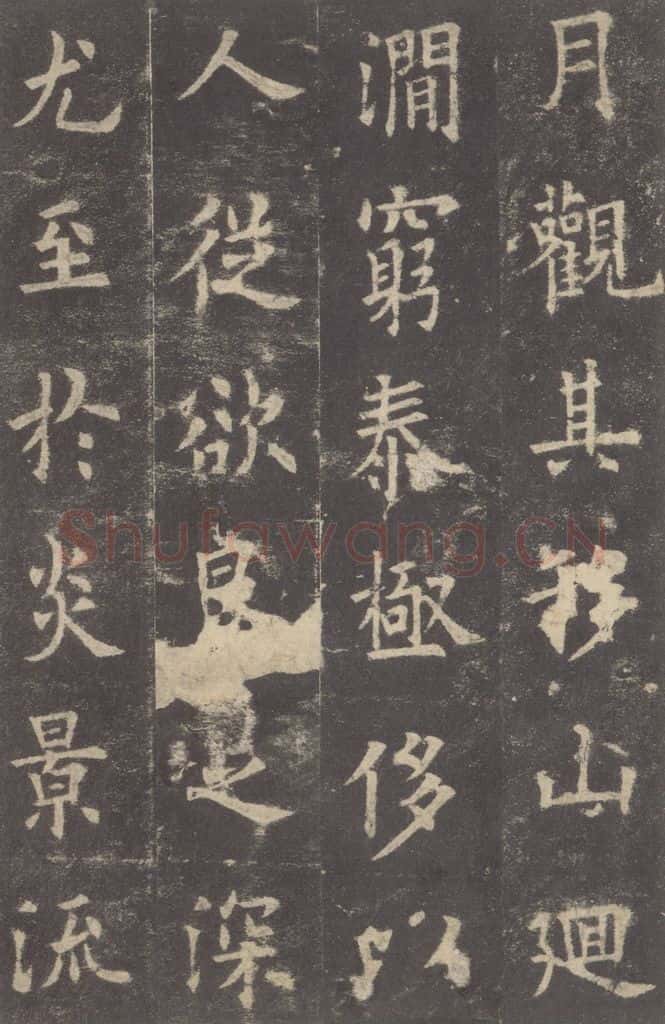 月觀其移山廻
澗窮泰極侈以
人従欲良深
尤至於炎景流
Shufawang.CN